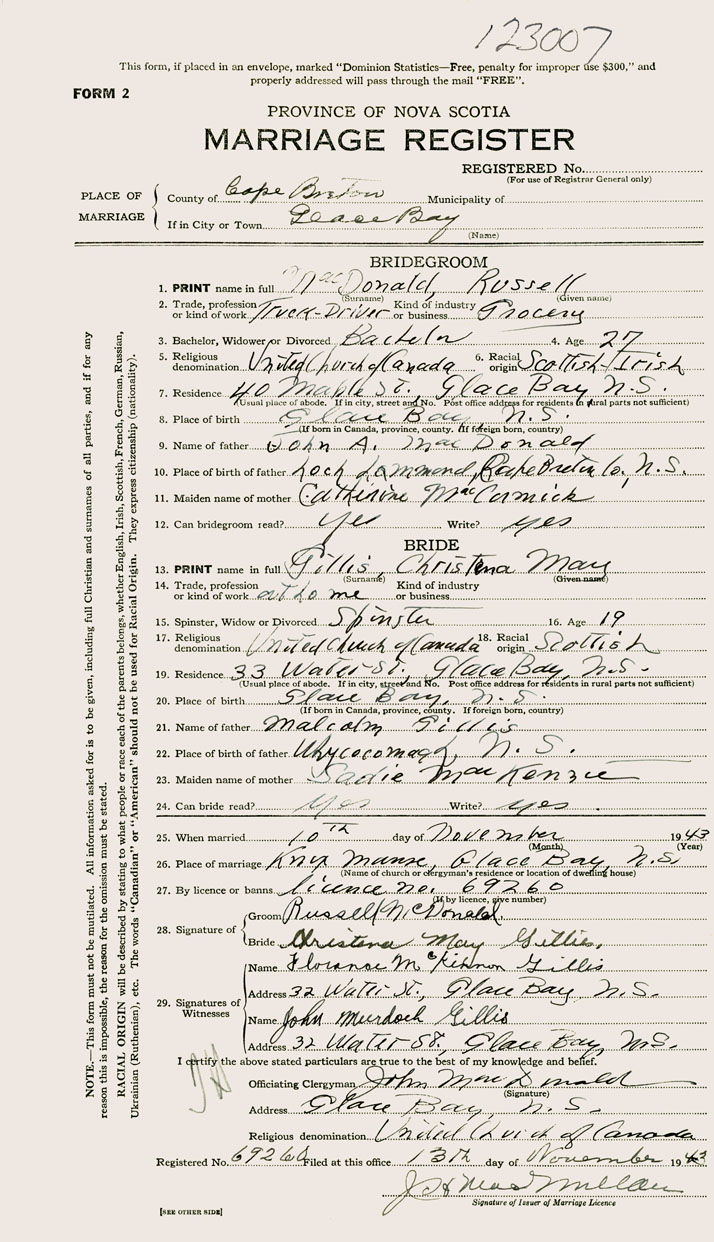 123007
This form, if placed in an envelope, marked "Dominion Statistics—Free, penalty for improper use $300," and
properly addressed will pass through the mail "FREE".
FORM 2
PROVINCE OF NOVA SCOTIA
MARRIAGE REGISTER
REGISTERED No.
(For use of Registrar General only)
PLACE OF MARRIAGE
County of Cape Breton Municipality of
If in City or Town Glace Bay
(Name)
BRIDEGROOM
1. PRINT name in full MacDonald, Russell
(Surname) (Given name)
2. Trade, profession or kind of work Truck-Driver Kind of industry or business Grocery
3. Bachelor, Widower or Divorced Bachelor 4. Age 27
5. Religious denomination United Church of Canada 6. Racial origin Scottish-Irish
7. Residence 40 Maple St., Glace Bay N.S.
(Usual place of abode. If in city, street and No. Post office address for residents in rural parts not sufficient)
8. Place of birth Glace Bay, N.S.
(If born in Canada, province, county. If foreign born, country)
9. Name of father John A. MacDonald
10. Place of birth of father Loch Lommond, Cape Breton Co., N.S.
11. Maiden name of mother Catherine MacCormick
12. Can bridegroom read? yes Write? yes
BRIDE
13. PRINT name in full Gillis, Christena May
(Surname) (Given name)
14. Trade, profession or kind of work at home Kind of industry or business
15. Spinster, Widow or Divorced Spinster 16. Age 19
17. Religious denomination United Church of Canada 18. Racial origin Scottish
19. Residence 33 Water St., Glace Bay, N.S.
(Usual place of abode. If in city, street and No. Post office address for residents in rural parts not sufficient)
20. Place of birth Glace Bay, N.S.
(If born in Canada, province, county. If foreign born, country)
21. Name of father Malcolm Gillis
22. Place of birth of father Whycocomagh, N.S.
23. Maiden name of mother Sadie MacKenzie
24. Can bride read? yes Write? yes
25. When married 10th day of November 1943
(Month) (Year)
26. Place of marriage Knox Manse, Glace Bay, N.S.
(Name of church or clergyman's residence or location of dwelling house)
27. By licence or banns licence no. 69260
(If by licence, give number)
28. Signature of
Groom Russell McDonald.
Bride Christena May Gillies.
29. Signatures of Witnesses
Name Florence McKinnon Gillis
Address 32 Water St., Glace Bay N.S.
Name John Murdoch Gillis
Address 32 Water St., Glace Bay, N.S.
I certify the above stated particulars are true to the best of my knowledge and belief.
Officiating Clergyman John MacDonald
(Signature)
Address Glace Bay, N.S.
Religious denomination United Church of Canada
Registered No. 69260 Filed at this office 13th day of November 1943
Signature of Issuer of Marriage Licence
[SEE OTHER SIDE]
NOTE.—This form must not be mutilated. All information asked for is to be given, including full Christian and surnames of all parties, and if for any
reason this is impossible, the reason for the omission must be stated.
RACIAL ORIGIN will be described by stating to what people or race each of the parents belongs, whether English, Irish, Scottish, French, German, Russian,
Ukrainian (Ruthenian), etc. The words "Canadian" or "American" should not be used for Racial Origin. They express citizenship (nationality).